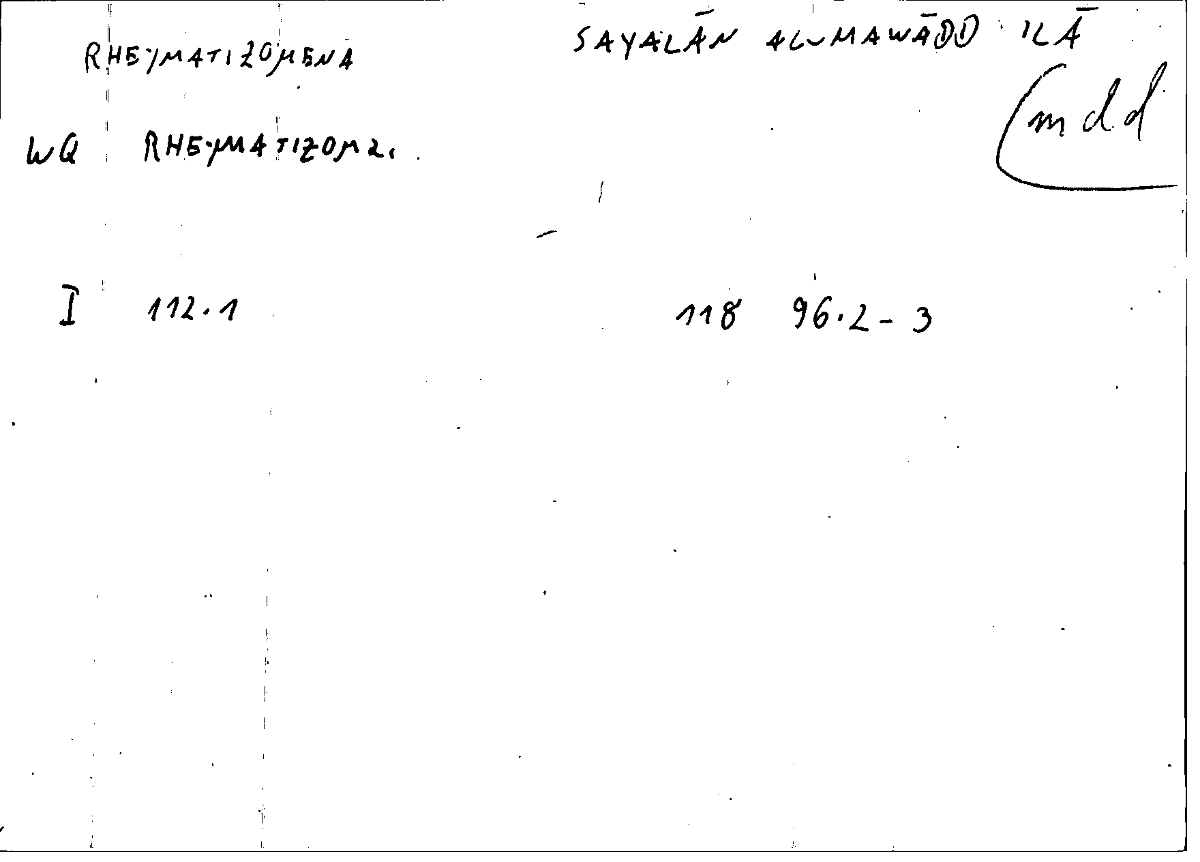 RHEYMATIZOMENA SAYALĀN ALMAWĀDD ILĀ
mdd
WQ RHEYMATIZOM
I 112.1 118 96.2-3